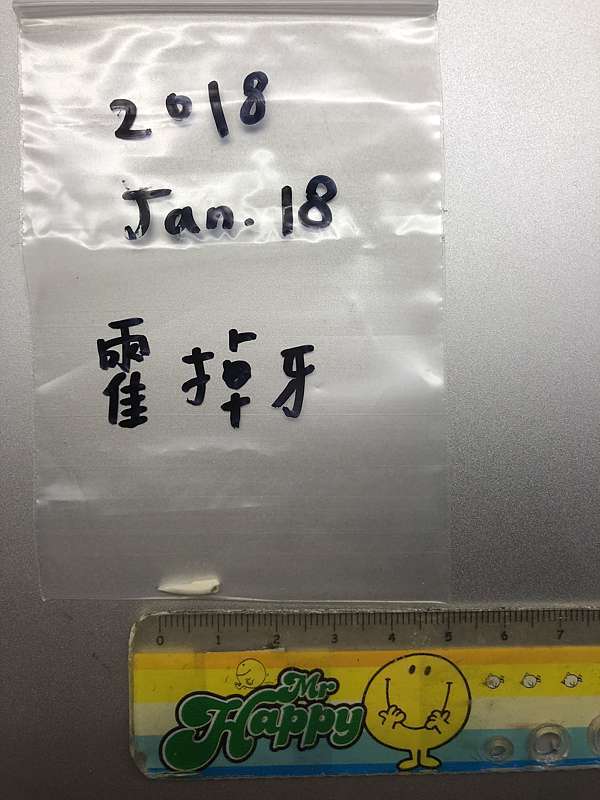 2018
Jan. 18
霍掉牙
0 1 2 3 4 5 6 7
Mr
Happy